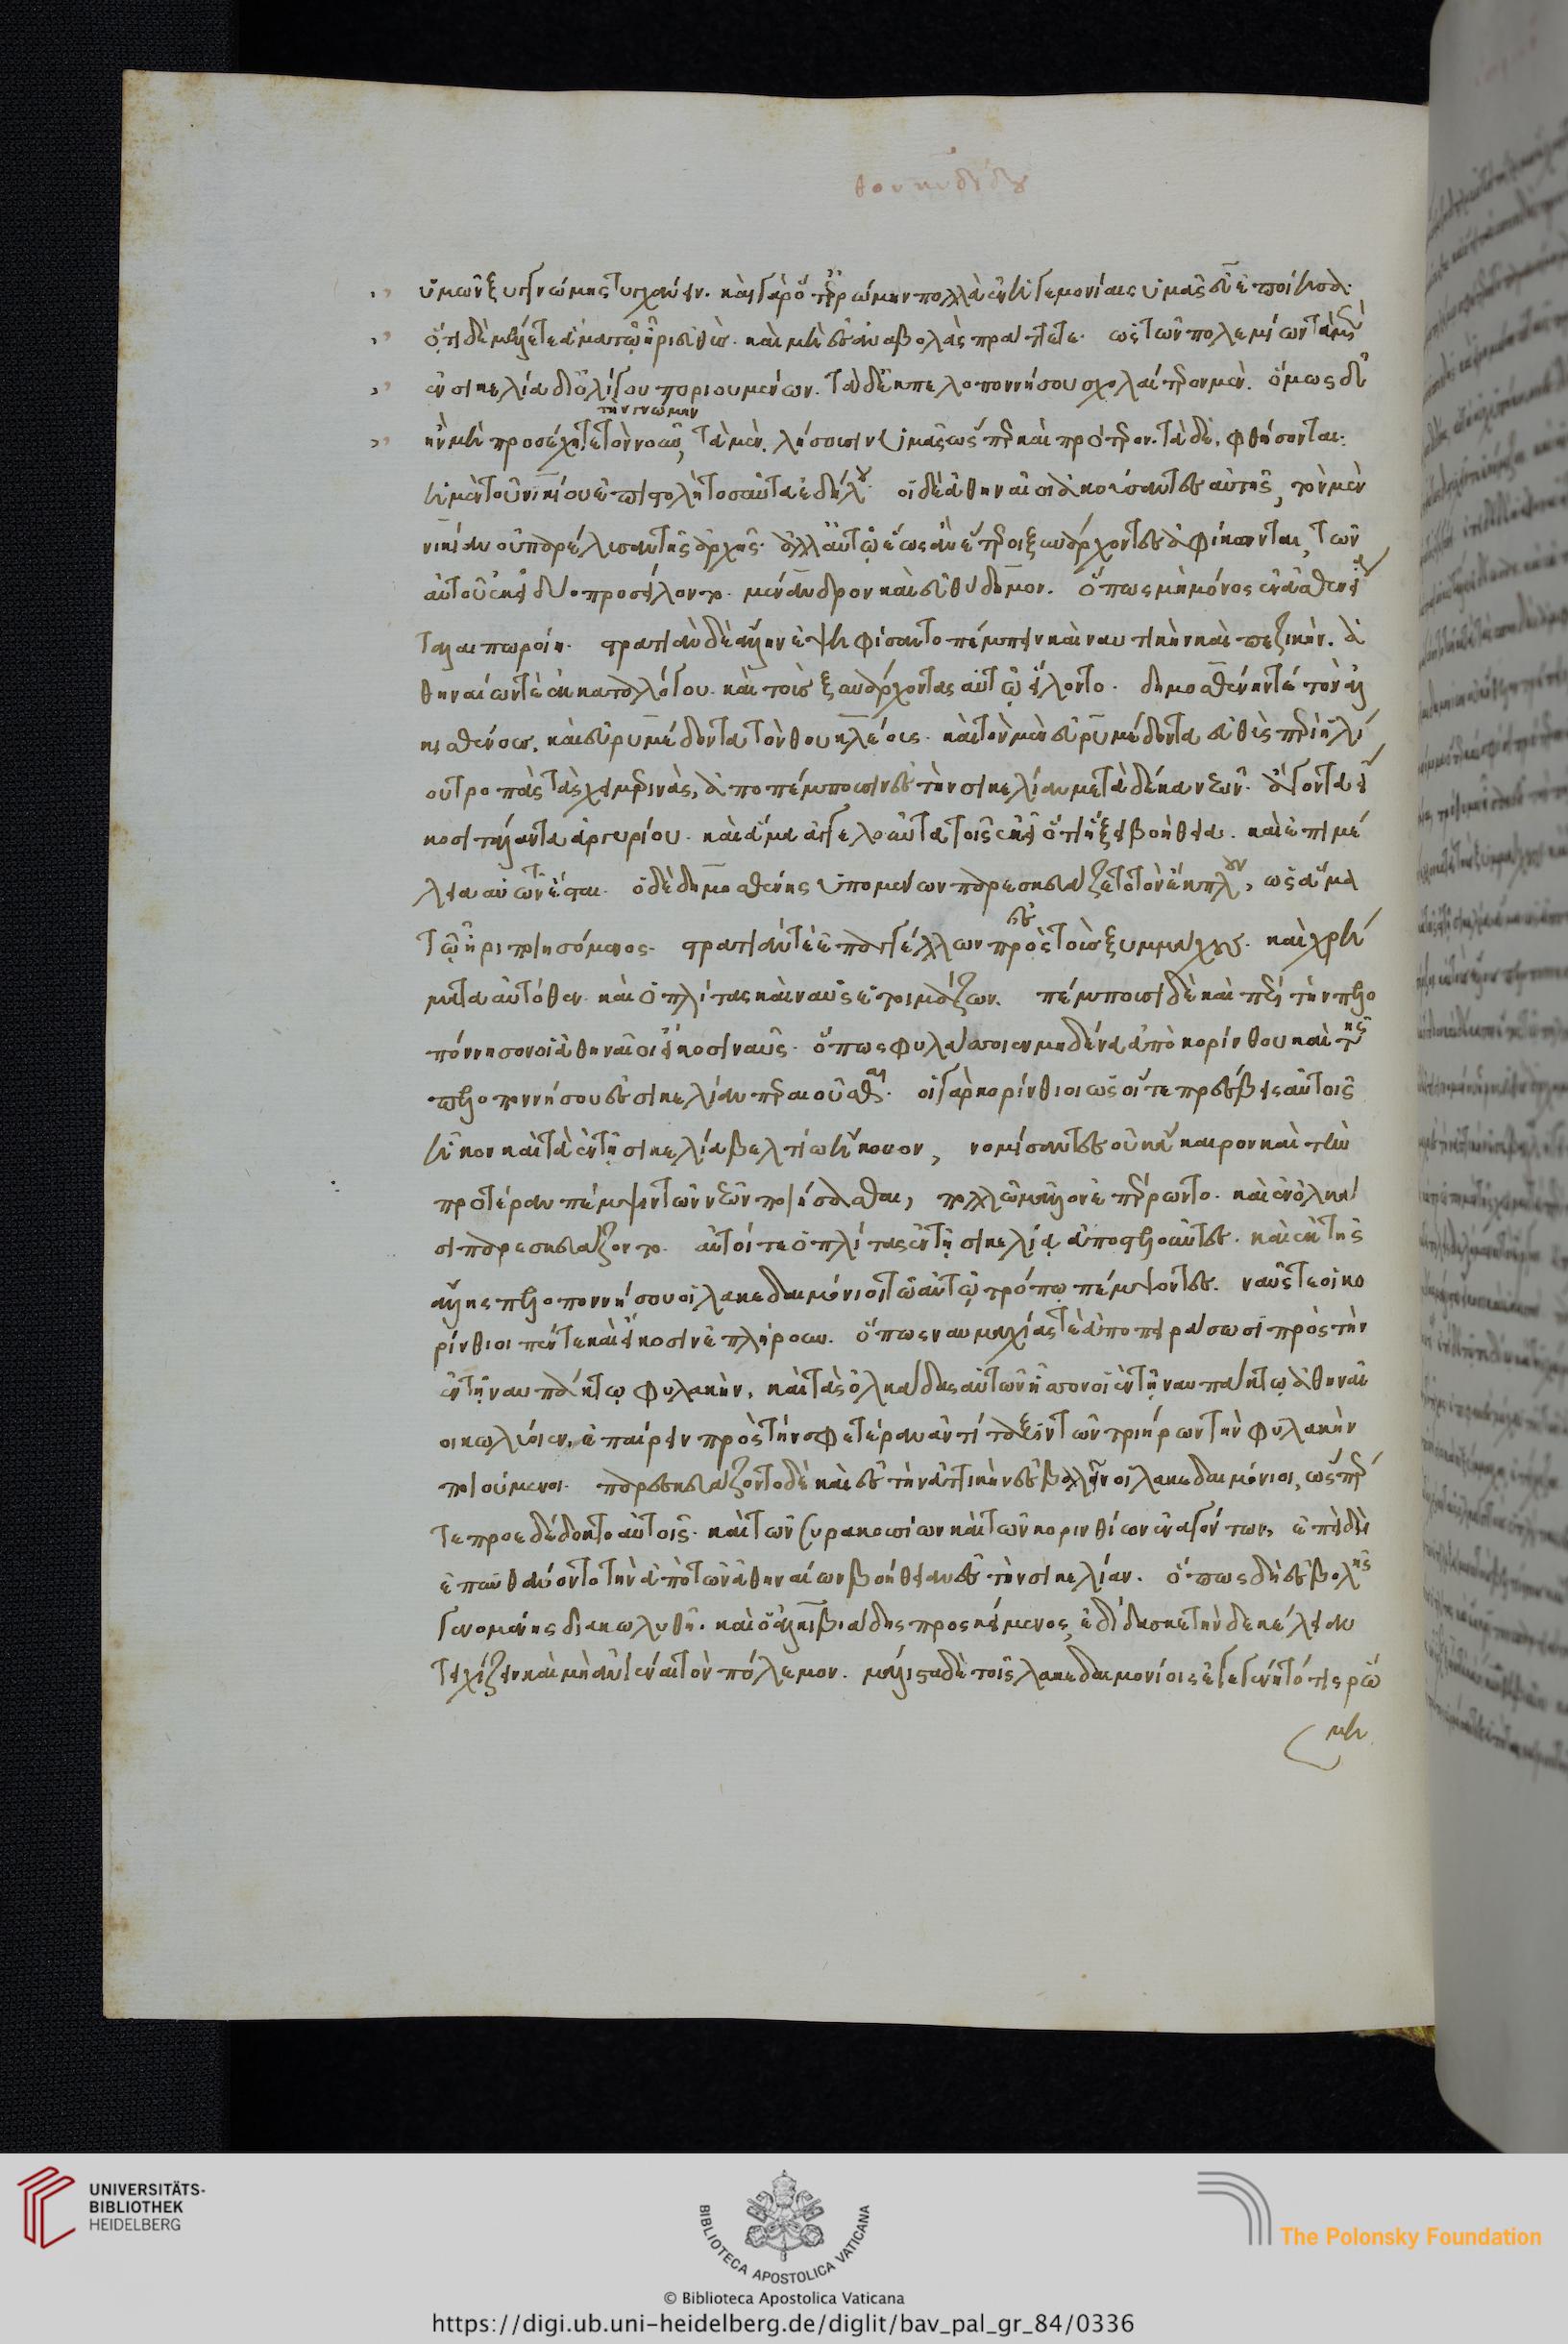 θουκυδίδου
ὑμῶν ξυγγνώμης τυγχάνειν. καὶ γὰρ ὅτ' ἐρρώμην πολλὰ ἐν ἡγεμονίαις ὑμᾶς εὖ ἐποίησα.
ὅτι δὲ μέλλετε ἅμα τῷ ἦρι εὐθὺς. καὶ μὴ ἐς ἀναβολὰς πράττετε. ὡς τῶν πολεμίων τὰ μὲν
ἐν σικελία δι' ὀλίγου ποριουμένων. τὰ δ' ἐκ πελοποννήσου σχολαίτερον μὲν. ὅμως δ'
τὴν γνώμην
ἢν μὴ προσέχητε τὸν νοῦν, τὰ μὲν. λήσουσιν ὑμᾶς ὥσπερ καὶ πρότερον. τὰ δὲ, φθήσονται.
ἡ μὲν τοῦ νικίου ἐπιστολὴ τοσαῦτα ἐδήλου. οἱ δὲ ἀθηναῖοι ἀκούσαντες αὐτῆς, τὸν μὲν
νικίαν οὐ παρέλυσαν τῆς ἀρχῆς. ἀλλ' αὐτῷ ἕως ἂν ἕτεροι ξυνάρχοντες ἀφίκωνται, τῶν
αὐτοῦ ἐκεῖ δύο προσείλοντο. μένανδρον καὶ εὐθύδημον. ὅπως μὴ μόνος ἐν ἀσθενείᾳ
ταλαιπωροίη. στρατιὰν δὲ ἄλλην ἐψηφίσαντο πέμπειν καὶ ναυτικὴν καὶ πεζικὴν. ἀ
θηναίων τὲ ἐκ καταλόγου. καὶ τοὺς ξυνάρχοντας αὐτῷ εἵλοντο. δημοσθένην τέ τὸν ἀλ
κισθένους. καὶ εὐρυμέδοντα τὸν θουκλέους. καὶ τὸν μὲν εὐρυμέδοντα εὐθὺς περὶ ἡλί
ου τροπὰς τὰς χειμερινὰς, ἀποπέμπουσιν ἐς τὴν σικελίαν μετὰ δέκα νεῶν. ἄγοντα εἴ
κοσι τάλαντα ἀργυρίου. καὶ ἅμα ἀγγελοῦντα τοῖς ἐκεῖ ὅτι ἥξει βοήθεια. καὶ ἐπιμέ
λεια αὐτῶν ἔσται. ὁ δὲ δημοσθένης ὑπομένων παρεσκευάζετο τὸν ἔκπλουν, ὡς ἅμα
ἐς
τῷ ἦρι ποιησόμενος. στρατιάν τὲ ἐπαγγέλλων πρὸς τοὺς ξυμμάχους. καὶ χρή
ματα αὐτόθεν. καὶ ὁπλίτας καὶ ναῦς ἑτοιμάζων. πέμπουσι δὲ καὶ περὶ τὴν πελο
πόννησον οἱ ἀθηναῖοι εἴκοσι ναῦς. ὅπως φυλάσσοιεν μηδένα ἀπὸ κορίνθου καὶ τῆς
πελοποννήσου ἐς σικελίαν περαιοῦσθαι. οἱ γὰρ κορίνθιοι ὡς οἵ τε πρέσβεις αὐτοῖς
ἧκον καὶ τὰ ἐν τῇ σικελία βελτίω ἤκουον, νομίσαντες οὐκ ἄκαιρον καὶ τὴν
προτέραν πέμψιν τῶν νεῶν ποιήσασθαι, πολλῷ μᾶλλον ἐπέρρωντο. καὶ ἐν ὁλκά
σι παρεσκευάζοντο. αὐτοί τε ὁπλίτας ἐν τῇ σικελίᾳ ἀποστελοῦντες. καὶ ἐκ τῆς
ἄλλης πελοποννήσου οἱ λακεδαιμόνιοι τῷ αὐτῷ τρόπῳ πέμψοντες. ναῦς τε οἱ κο
ρίνθιοι πέντε καὶ εἴκοσιν ἐπλήρουν. ὅπως ναυμαχίας τὲ ἀποπειράσωσι πρὸς τὴν
ἐν τῇ ναυπάκτῳ φυλακὴν, καὶ τὰς ὁλκάδας αὐτῶν ἧσσον οἱ ἐν τῇ ναυπάκτῳ ἀθηναῖ
οι κωλύοιεν. ἐπαίρειν πρὸς τὴν σφετέραν ἀντίταξιν τῶν τριήρων τὴν φυλακὴν
ποιούμενοι. παρεσκευάζοντο δὲ καὶ ἐς τὴν ἀττικὴν ἐσβολὴν οἱ λακεδαιμόνιοι, ὥσπερ
τε προεδέδοκτο αὐτοῖς. καὶ τῶν συρακουσίων καὶ τῶν κορινθίων ἐναγόντων, ἐπειδὴ
ἐπυνθάνοντο τὴν ἀπὸ τῶν ἀθηναίων βοήθειαν ἐς τὴν σικελίαν. ὅπως δὴ ἐσβολῆς
γενομένης διακωλυθῇ. καὶ ὁ ἀλκιβιάδης προσκείμενος, ἐδίδασκε τὴν δεκέλειαν
τειχίζειν καὶ μὴ ἀνιέναι τὸν πόλεμον. μάλιστα δὲ τοῖς λακεδαιμονίοις ἐγεγένητό τις ῥώ
μη
UNIVERSITÄTS-
BIBLIOTHEK
HEIDELBERG
BIBLIOTECA APOSTOLICA VATICANA
The Polonsky Foundation
© Biblioteca Apostolica Vaticana
https://digi.ub.uni-heidelberg.de/diglit/bav_pal_gr_84/0336